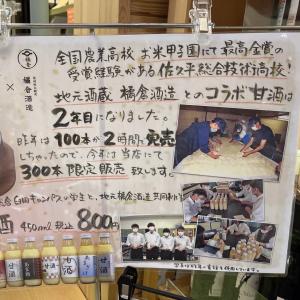 全国農業高校 お米甲子園にて最高金賞の
受賞経験がある佐久平総合技術高校
×
橘倉酒造
地元酒蔵 橘倉酒造 とのコラボ甘酒は
2年目になりました。
昨年は100本が2時間で完売
しちゃったので、今年は当店にて
300本限定販売 致します。
臼田キャンパスの学生と、地元橘倉酒造
450ml 税込 800円
甘酒